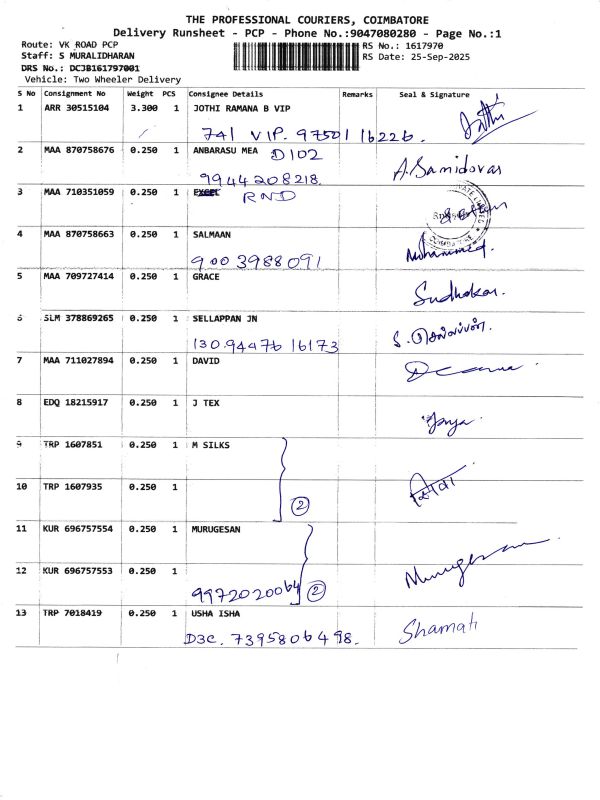 THE PROFESSIONAL COURIERS, COIMBATORE
Delivery Runsheet - PCP - Phone No.:9047080280 - Page No.:1
Route: VK ROAD PCP RS No.: 1617970
Staff: S MURALIDHARAN RS Date: 25-Sep-2025
DRS No.: DCJB161797001
Vehicle: Two Wheeler Delivery
S No Consignment No Weight PCS Consignee Details Remarks Seal & Signature
1 ARR 30515104 3.300 1 JOTHI RAMANA B VIP
741 VIP. 97501 16226. Jothi
2 MAA 870758676 0.250 1 ANBARASU MEA D102
9944208218. A. Samidovas
3 MAA 710351059 0.250 1 EXCEL RND
4 MAA 870758663 0.250 1 SALMAAN
9003988091 Mohammed.
5 MAA 709727414 0.250 1 GRACE
Sudhakar.
6 SLM 378869265 0.250 1 SELLAPPAN JN
130. 94476 16173 S. செல்லப்பன்.
7 MAA 711027894 0.250 1 DAVID
8 EDQ 18215917 0.250 1 J TEX
Jaya
9 TRP 1607851 0.250 1 M SILKS
10 TRP 1607935 0.250 1
2
11 KUR 696757554 0.250 1 MURUGESAN
12 KUR 696757553 0.250 1
9972020064 2 Murugesan
13 TRP 7018419 0.250 1 USHA ISHA
D3C. 7395806498. Shamati